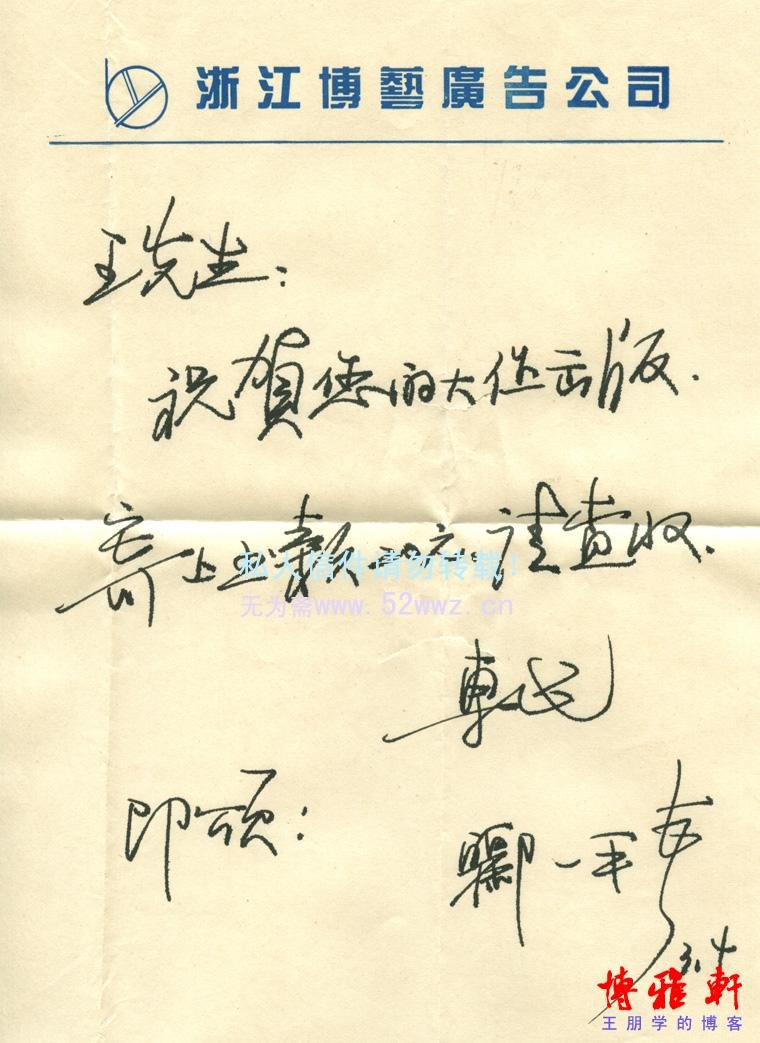 浙江博藝廣告公司
王先生：
祝賀您的大作出版.
寄上款请查收.
私人信件请勿转载！
无为斋www.52wwz.cn
专
即颂：
一平
3.4
博雅軒
王朋学的博客